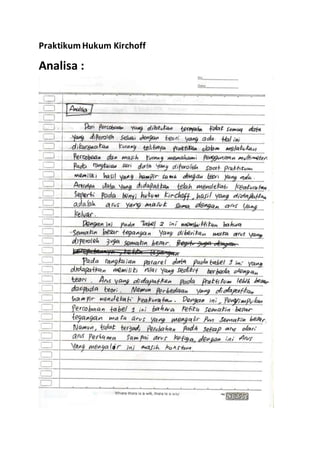 Praktikum Hukum Kirchoff
Analisa :
No.
Date
Analisa
Dari Percobaan yang dilakukan ternyata tidak semua data
yang diperoleh sesuai dengan teori yang ada. Hal ini
dikarenakan kurang telitinya praktikan dalam melakukan
Percobaan dan masih kurang memahami penggunaan multimeter.
Pada rangkaian seri data yang diperoleh saat praktikum
memiliki hasil yang hampir sama dengan teori yang ada.
data yang didapatkan telah mendekati keakuratan.
Seperti Pada bunyi hukum Kirchoff, hasil yang didapatkan
adalah arus yang masuk sama dengan arus yang
keluar.
Dengan ini pada tabel 2 ini membuktikan bahwa
Semakin besar tegangan yang diberikan maka arus yang
diperoleh juga semakin besar.
Pada rangkaian pararel data pada tabel 1 ini yang
didapatkan memiliki nilai yang sedikit berbeda dengan
teori. Arus yang didapatkan pada praktikum lebih besar
daripada teori. Namun Perbedaan yang didapatkan
hampir mendekati keakuratan. Dengan ini, Pengimpulan
Percobaan tabel 1 ini bahwa ketika semakin besar
tegangan maka arus yang mengalir pun semakin besar.
Namun, tidak terjadi Perubahan pada setiap arus dari
arus Pertama sampai arus ketiga, dengan ini arus
yang mengalir ini masih konstan.
Where there is a will, there is a way